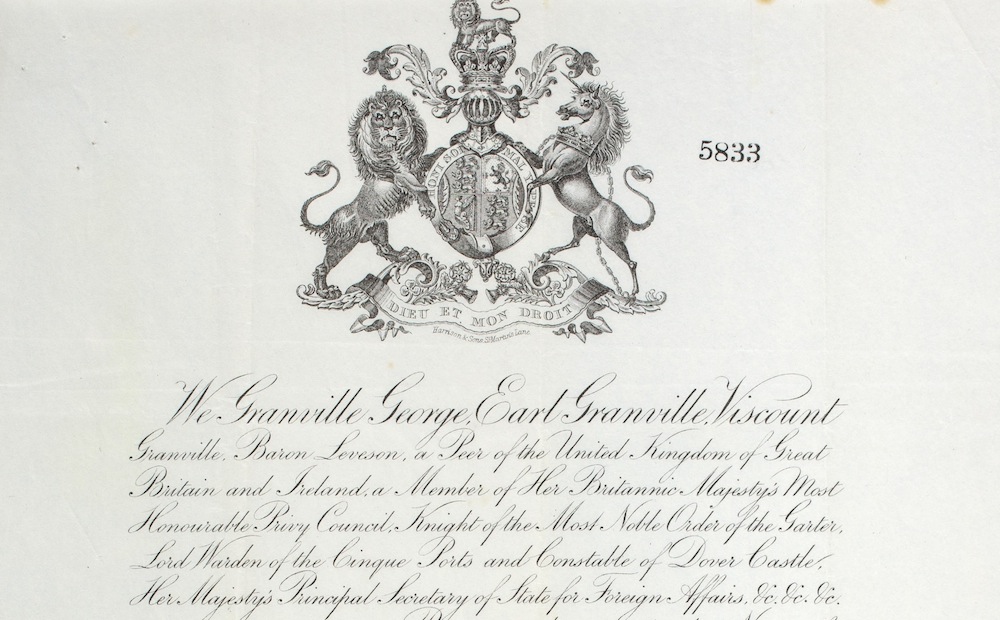 HONI SOI MAL Y PENSE
5833
DIEU ET MON DROIT
Harrison & Sons St Martin's Lane
We Granville George, Earl Granville, Viscount
Granville, Baron Leveson, a Peer of the United Kingdom of Great
Britain and Ireland, a Member of Her Britannic Majesty's Most
Honourable Privy Council, Knight of the Most Noble Order of the Garter,
Lord Warden of the Cinque Ports and Constable of Dover Castle,
Her Majesty's Principal Secretary of State for Foreign Affairs, &c. &c. &c.